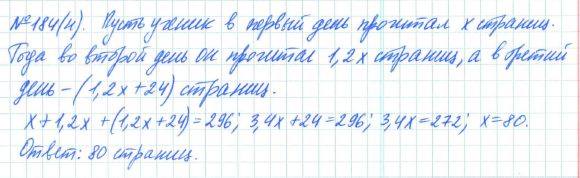 №184(4). Пусть ученик в первый день прочитал x страниц.
Тогда во второй день он прочитал 1,2x страниц, а в третий
день – (1,2x+24) страниц.
x+1,2x+(1,2x+24)=296; 3,4x+24=296; 3,4x=272; x=80.
Ответ: 80 страниц.